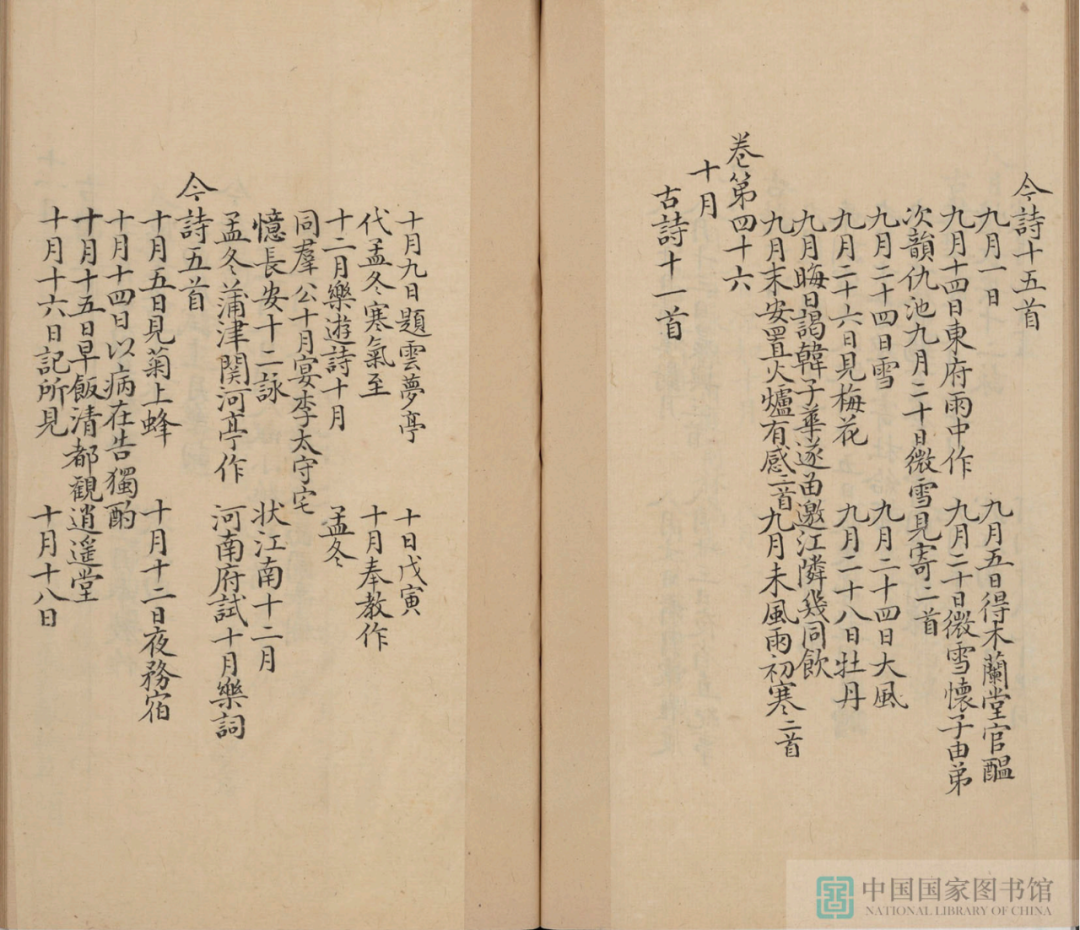 今詩十五首
九月一日　九月五日得木蘭堂官醖
九月十四日東府雨中作　九月二十日微雪懷子由弟
次韻仇池九月二十日微雪見寄二首
九月二十四日雪　九月二十四日大風
九月二十六日見梅花　九月二十八日牡丹
九月晦日謁韓子華遂留邀江隣幾同飲
九月末安置火爐有感二首　九月末風雨初寒二首
卷第四十六
十月
古詩十一首
十月九日題雲夢亭　十日戊寅
代孟冬寒氣至　十月奉教作
十二月樂遊詩十月　孟冬
同羣公十月宴李太守宅
憶長安十二詠　状江南十二月
孟冬蒲津関河亭作　河南府試十月樂詞
今詩五首
十月五日見菊上蜂　十月十二日夜務宿
十月十四日以病在告獨酌
十月十五日早飯清都觀逍遥堂
十月十六日記所見　十月十八日
中国国家图书馆
NATIONAL LIBRARY OF CHINA